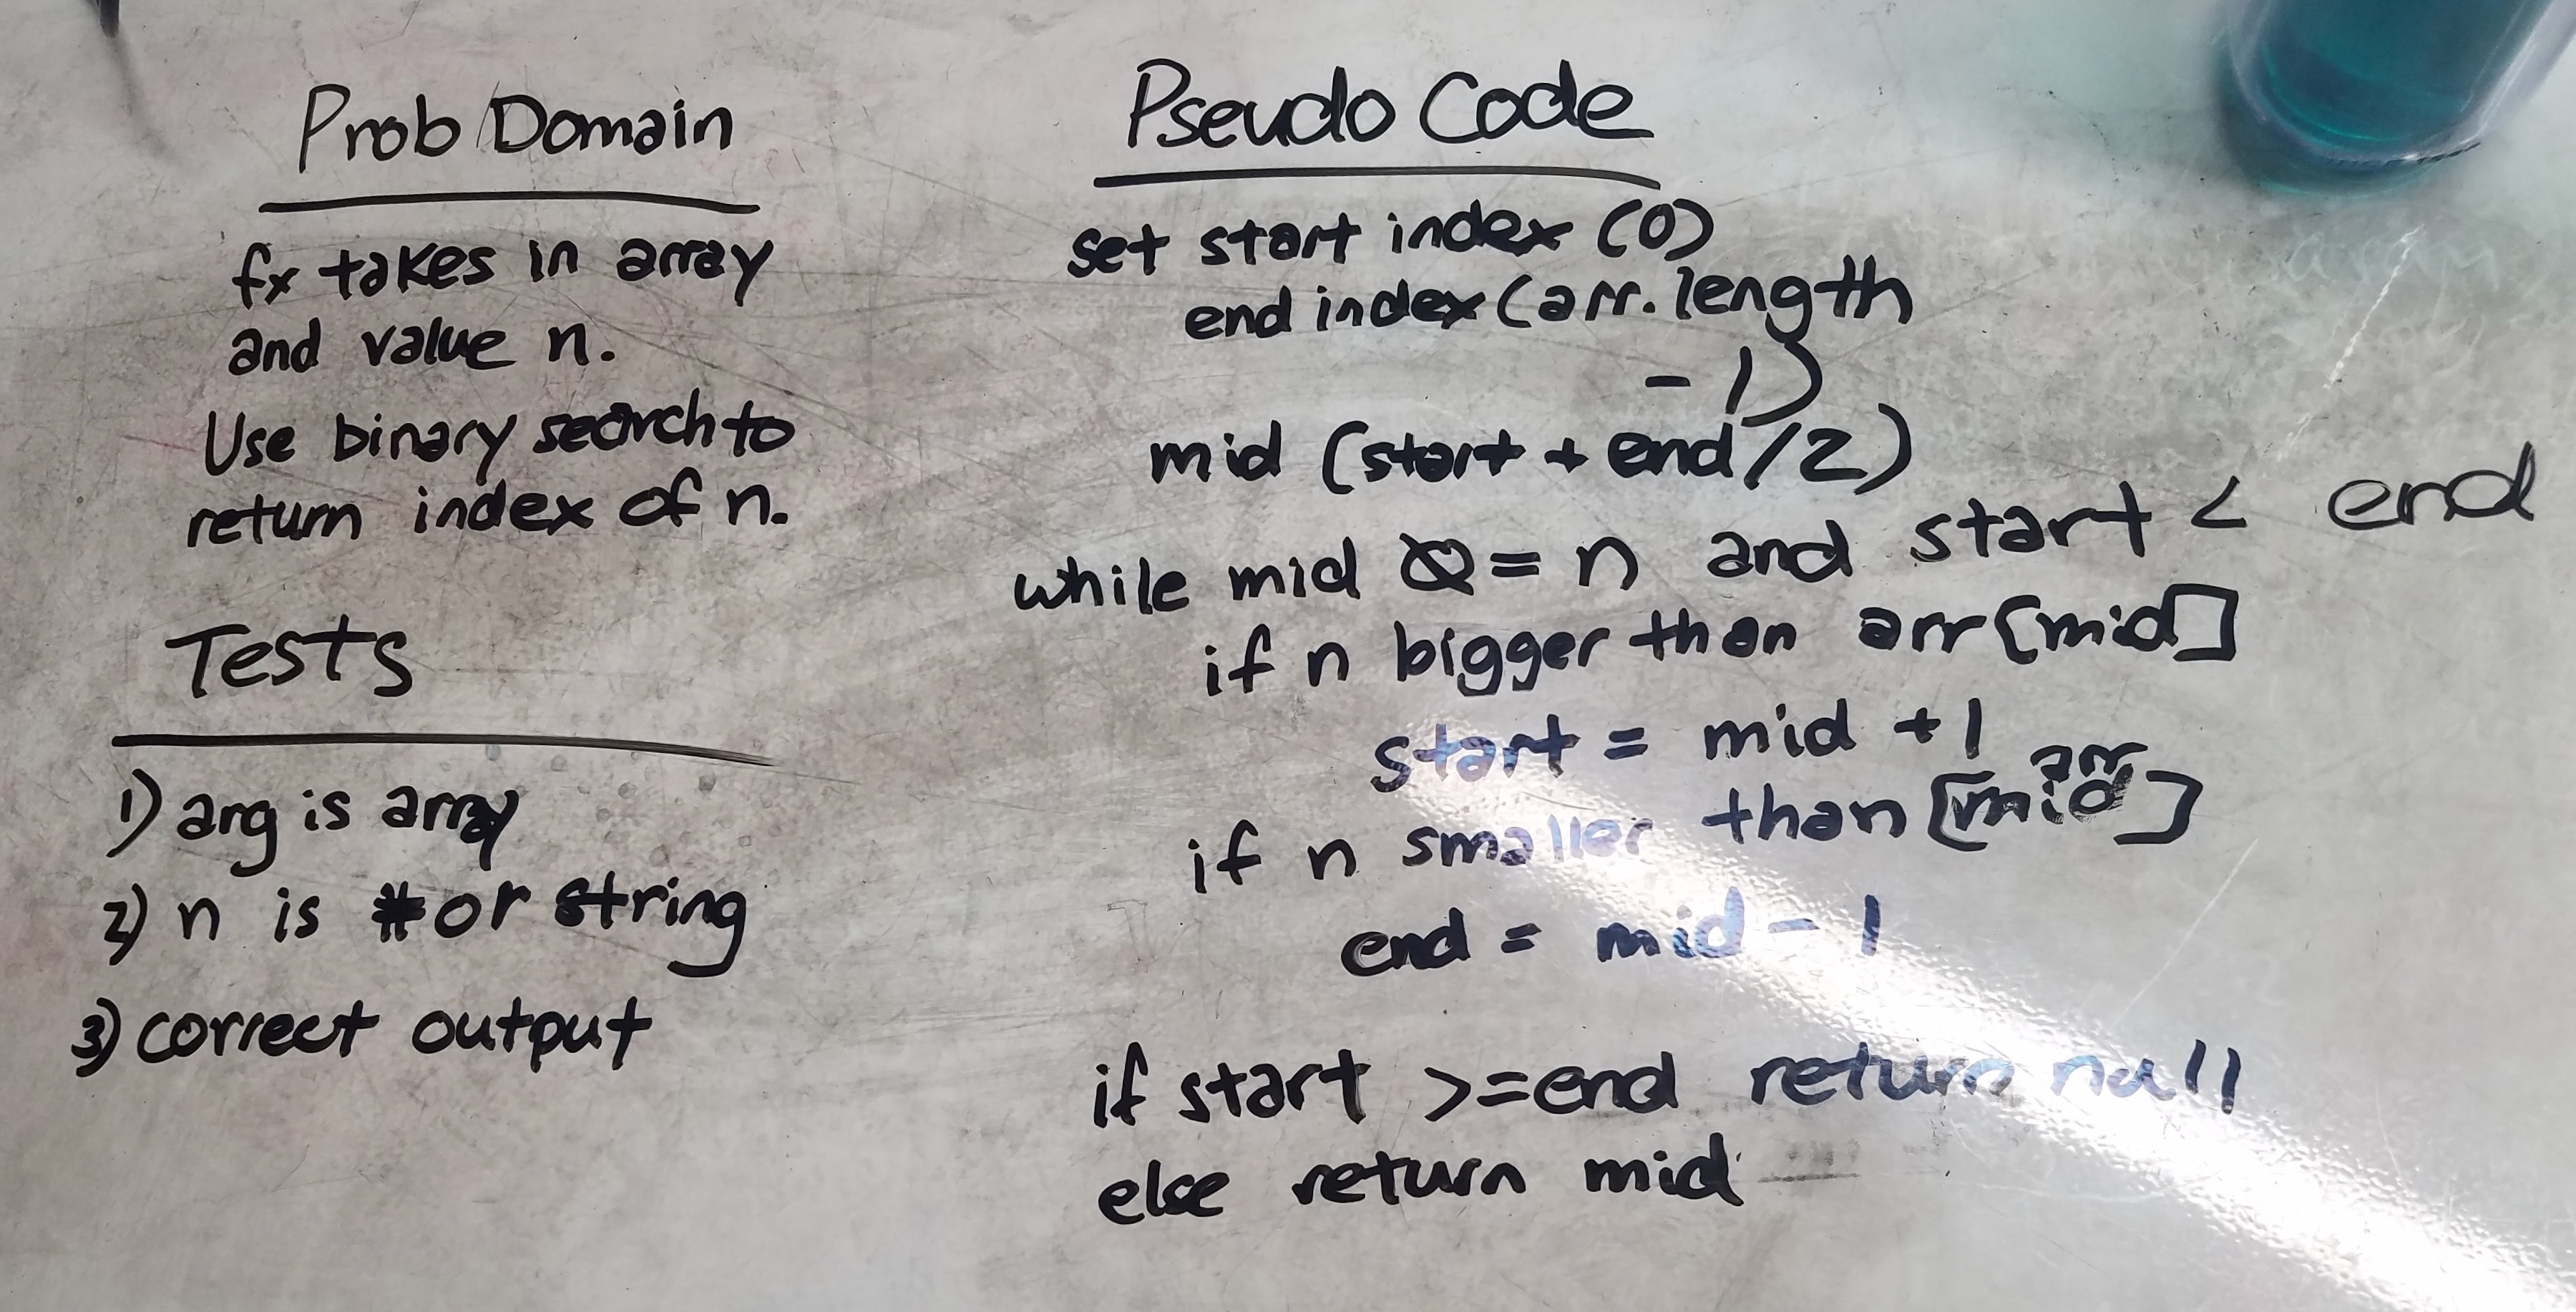 Prob Domain
fx takes in array
and value n.
Use binary search to
return index of n.
Tests
1) arg is array
2) n is # or string
3) correct output
Pseudo Code
set start index (0)
end index (arr.length
- 1)
mid (start + end / 2)
while mid = n and start < end
if n bigger than arr[mid]
start = mid +1
arr
if n smaller than [mid]
end = mid - 1
if start >= end return null
else return mid